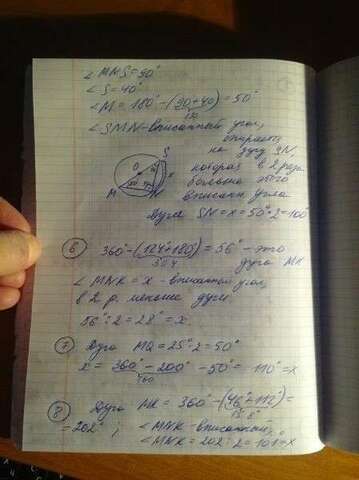 ∠MNS=90°
∠S=40°
∠M=180°-(90+40)=50°
130
∠SMN-вписанный угол,
опирается
на дугу SN,
которая в 2 раза
больше этого
вписан. угла
Дуга SN=x=50°·2=100°
O
S
x
M
N
6) 360°-(124°+180°)=56°-это
304
дуга MK
∠MNK=x-вписанный угол,
в 2 р. меньше дуги.
56°:2=28°=x.
7) Дуга MQ=25°·2=50°
x=360°-200°-50°=110°=x
160
8) Дуга MK=360°-(46°+112°)=
158°
=202°; ∠MNK-вписанный,
∠MNK=202:2=101°=x